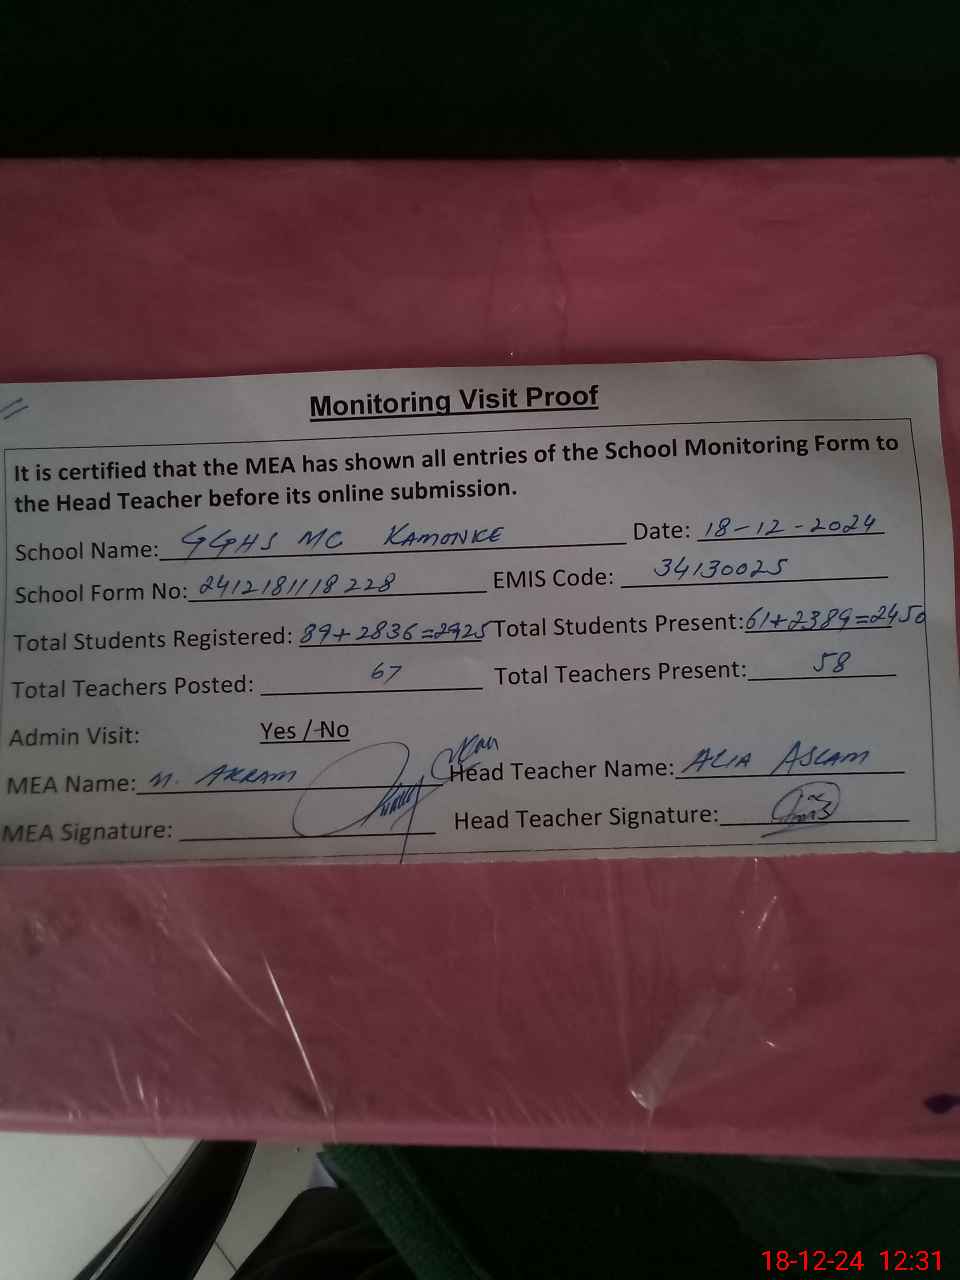 Monitoring Visit Proof
It is certified that the MEA has shown all entries of the School Monitoring Form to
the Head Teacher before its online submission.
School Name: GGHS MC KAMONKE Date: 18-12-2024
School Form No: 2412181118228 EMIS Code: 34130025
Total Students Registered: 89+2836=2925 Total Students Present: 61+2389=2450
Total Teachers Posted: 67 Total Teachers Present: 58
Admin Visit: Yes / No
MEA Name: M. AKRAM Head Teacher Name: ALIA ASLAM
MEA Signature: Head Teacher Signature:
18-12-24 12:31